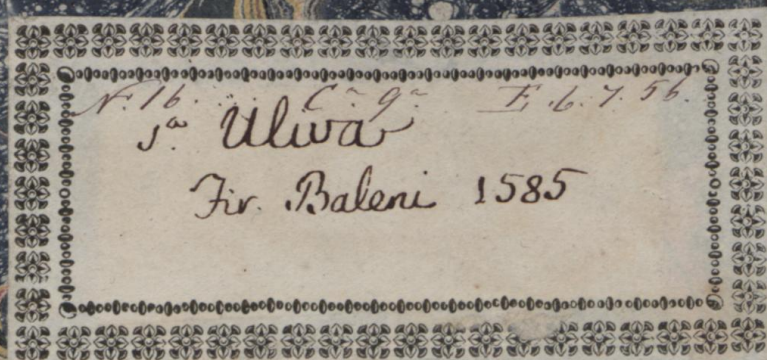 N. 16. C.ª 9.ª E. 6. 7. 56.
S.ª Uliva
Fir. Baleni 1585